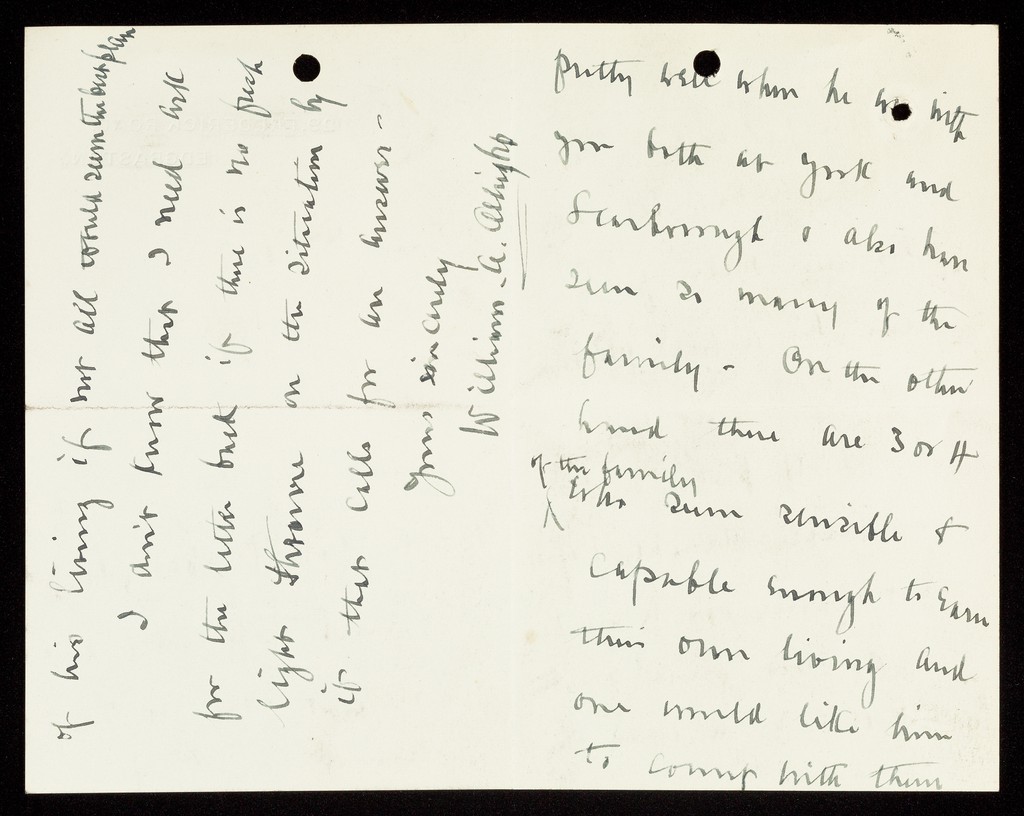 pretty well when he was with
you both at York and
Scarborough & also have
seen so many of the
family - On the other
hand there are 3 or 4
of the family
who seem sensible &
capable enough to earn
their own living and
one would like him
to comp with them
of his living if not all would seem the best plan
I don't know that I need ask
for the letter back if there is no fresh
light thrown on the situation by
it that calls for an answer -
Yours sincerely
William A.